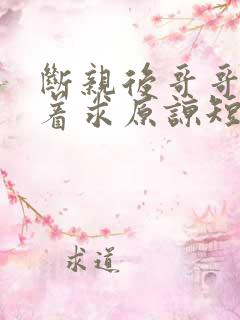 斷親後哥哥
着求原諒短
求道